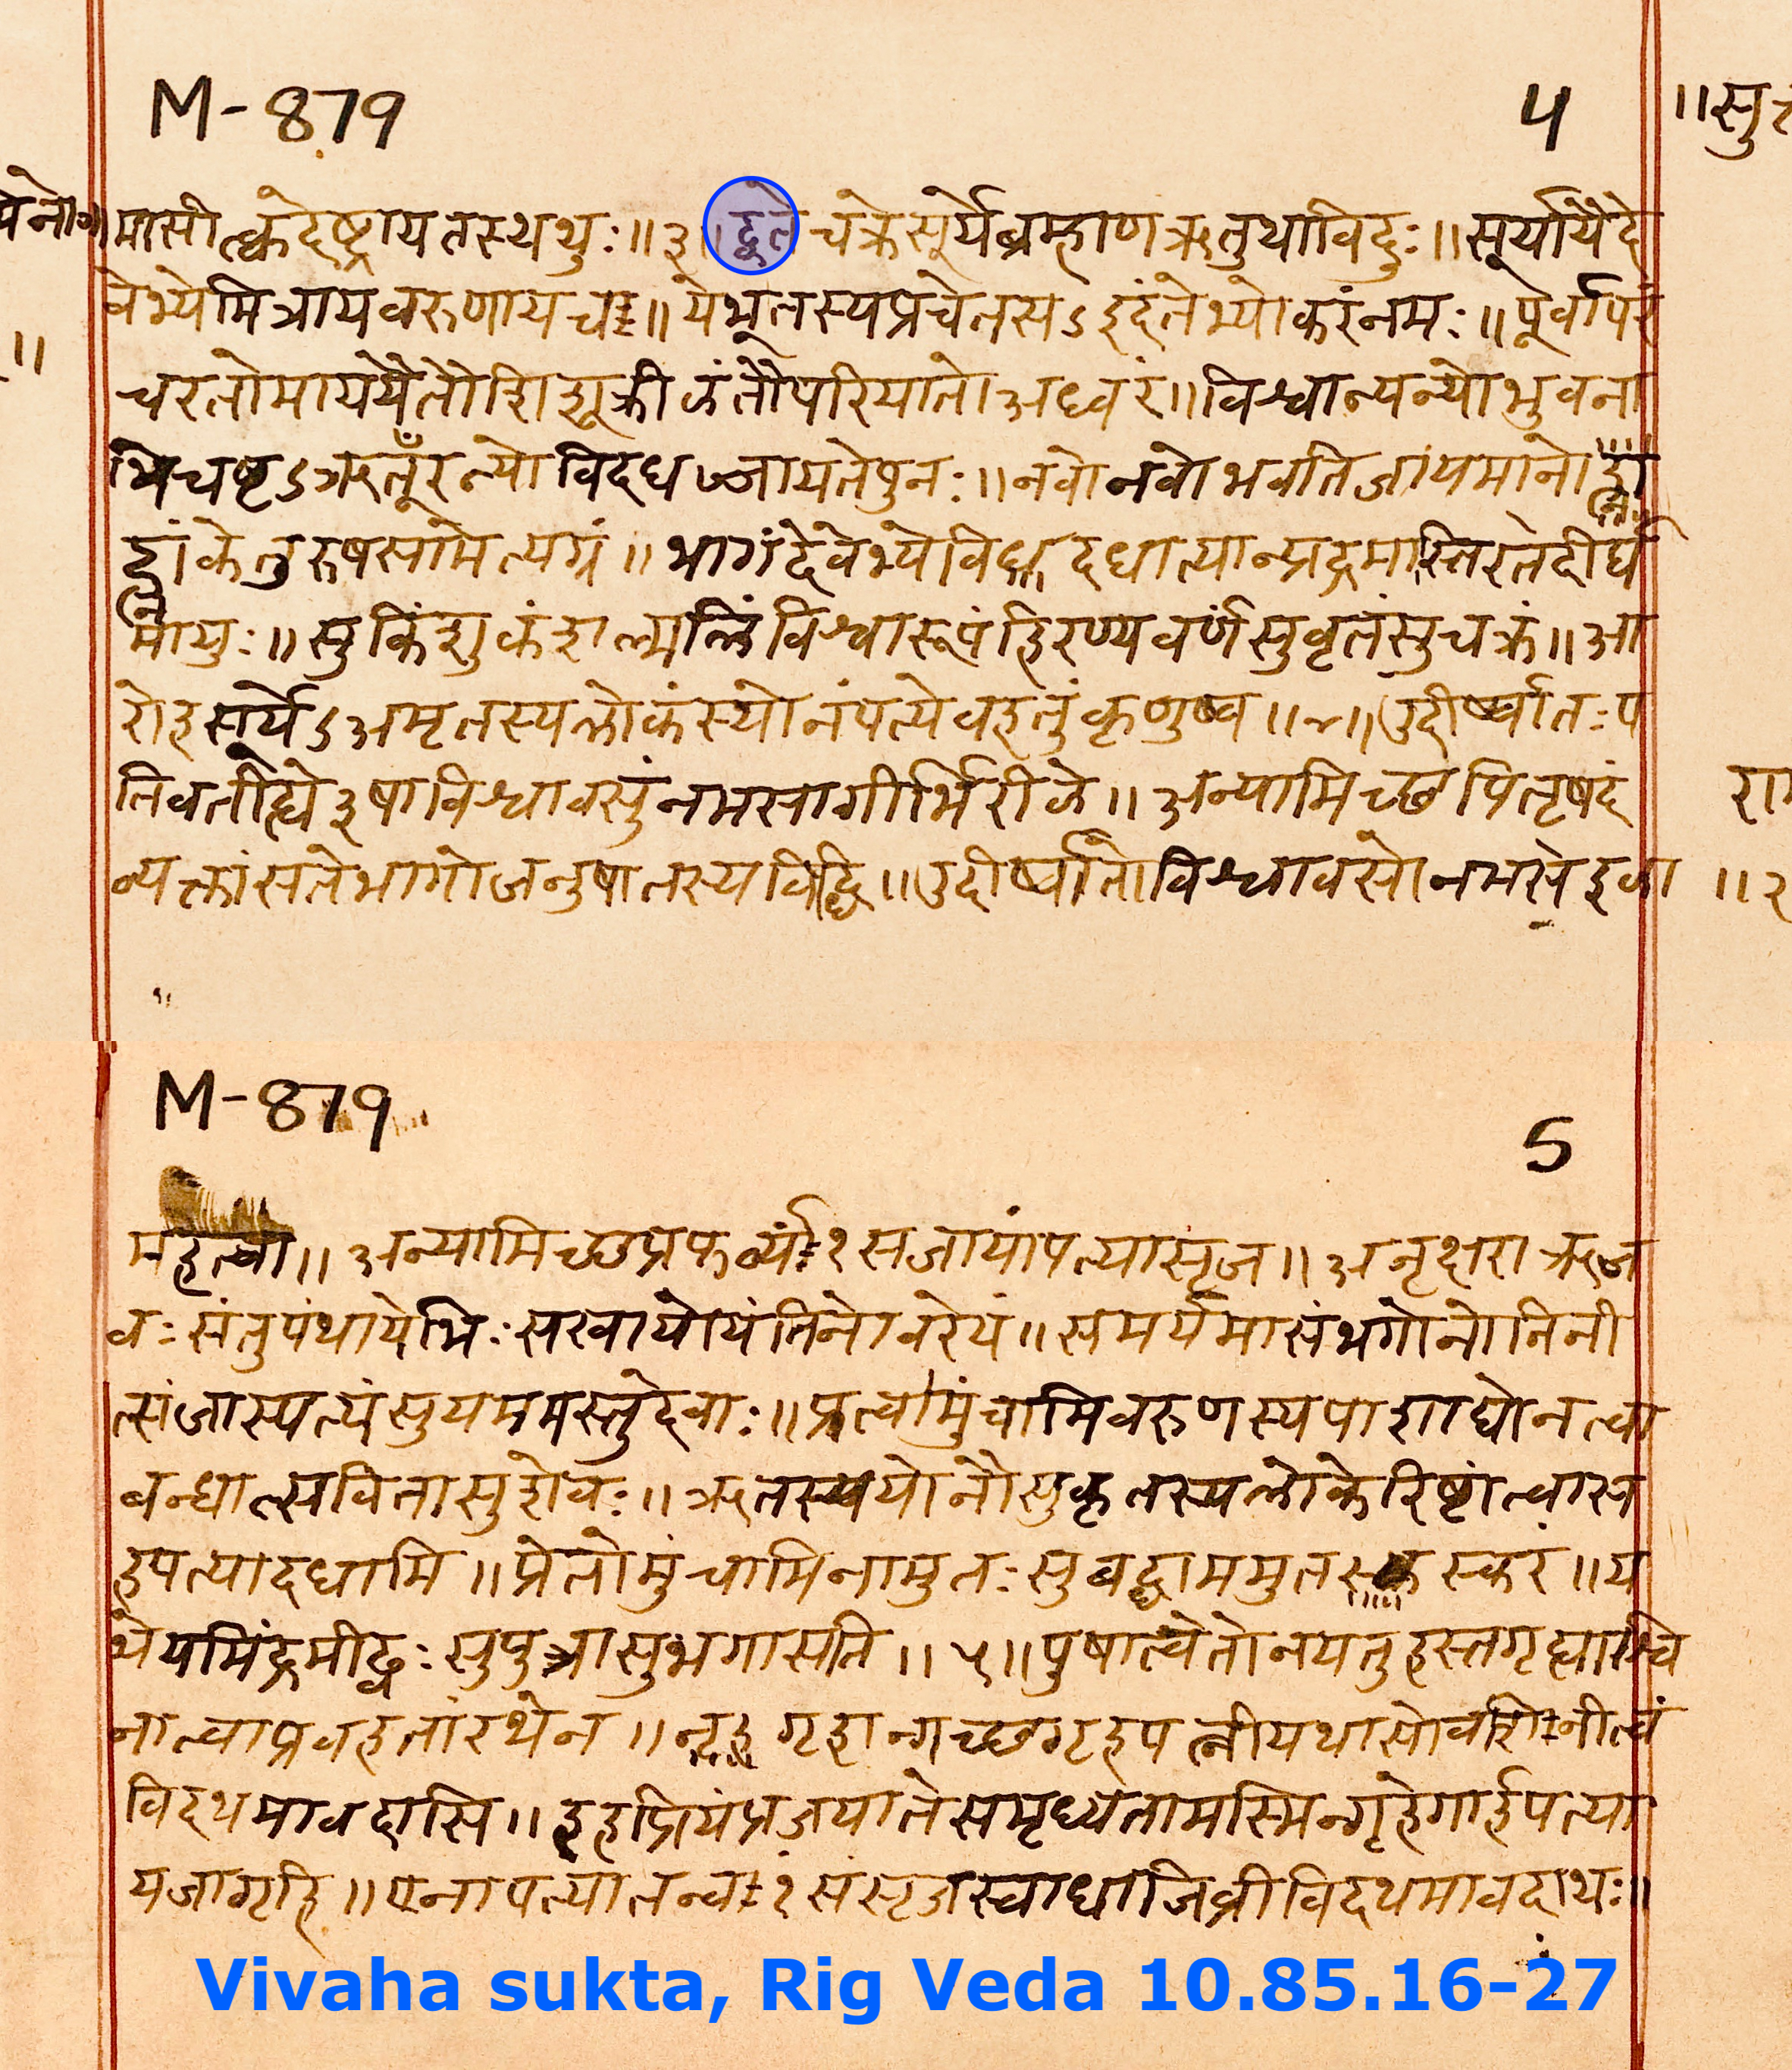 M-879
4
॥सु
मासीत्क्वदेष्ट्रायतस्थथुः॥३॥द्वेते चक्रेसूर्येब्रम्हाणऋतुथाविदुः॥सूर्यायैदे
वेभ्येमित्रायवरुणायच॥येभूतस्यप्रचेतसऽइदंतेभ्योकरंनमः॥पूर्वापरं
चरतोमाययैतौशिशूक्रीळंतौपरियातोअध्वरं॥विश्वान्यन्योभुवना
भिचष्टऽऋतूँरन्योविदधज्जायतेपुनः॥नवोनवोभवतिजायमानो
ह्नांकेतुरुषसामेत्यग्रं॥भागंदेवेभ्येविदधात्यान्प्रद्रमास्तिरतेदीर्घ
मायुः॥सुकिंशुकंशल्मलिंविश्वारूपंहिरण्यवर्णसुवृतंसुचक्रं॥आ
रोहसूर्येऽअमृतस्यलोकंस्योनंपत्येवहतुंकृणुष्व॥४॥उदीर्ष्वातःप
तिवतीह्ये३षाविश्वावसुंनमसागीर्भिरीळे॥अन्यामिच्छपितृषदं
न्यक्तांसतेभागोजनुषातस्यविद्धि॥उदीर्ष्वातोविश्वावसोनमसेळा
॥२
M-879
5
महेत्वा॥अन्यामिच्छप्रफर्व्यं१सजायांपत्यासृज॥अनृक्षराऋज
वःसंतुपंथायेभिःसखायोयंतिनोवरेयं॥समर्यमासंभगोनोनिनी
त्संजास्पत्यंसुयममस्तुदेवाः॥प्रत्वामुंचामिवरुणस्यपाशाद्येनत्वा
बन्धात्सवितासुशेवः॥ऋतस्ययोनौसुकृतस्यलोकेरिष्टांत्वास
हपत्यादधामि॥प्रेतोमुंचामिनामुतःसुबद्धाममुतस्करं॥य
थेयमिंद्रमीढ्वःसुपुत्रासुभगासति॥५॥पुषात्वेतोनयतुहस्तगृह्याश्वि
नात्वाप्रवहतांरथेन॥गृहान्गच्छगृहपत्नीयथासोवशिनीत्वं
विदथमावदासि॥इहप्रियंप्रजयातेसमृध्यतामस्मिन्गृहेगार्हपत्या
यजागृहि॥एनापत्यातन्वं१संसृजस्वाधाजिव्रीविदथमावदाथः॥
Vivaha sukta, Rig Veda 10.85.16-27